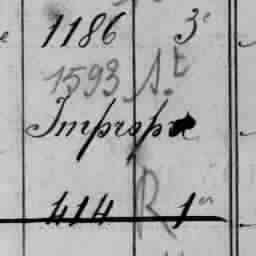 1186 3e
1593 A.t
Impropre
414 R 1er